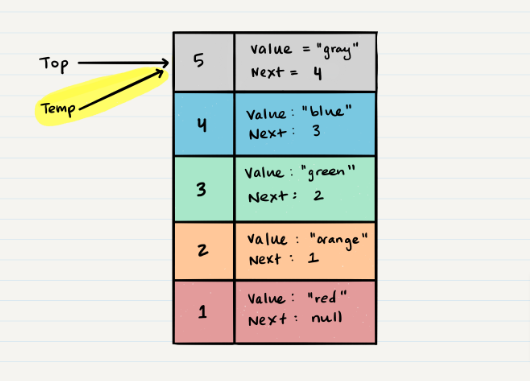 Top
Temp
5
value = "gray"
Next = 4
4
Value : "blue"
Next : 3
3
Value : "green"
Next : 2
2
Value : "orange"
Next : 1
1
Value : "red"
Next : null